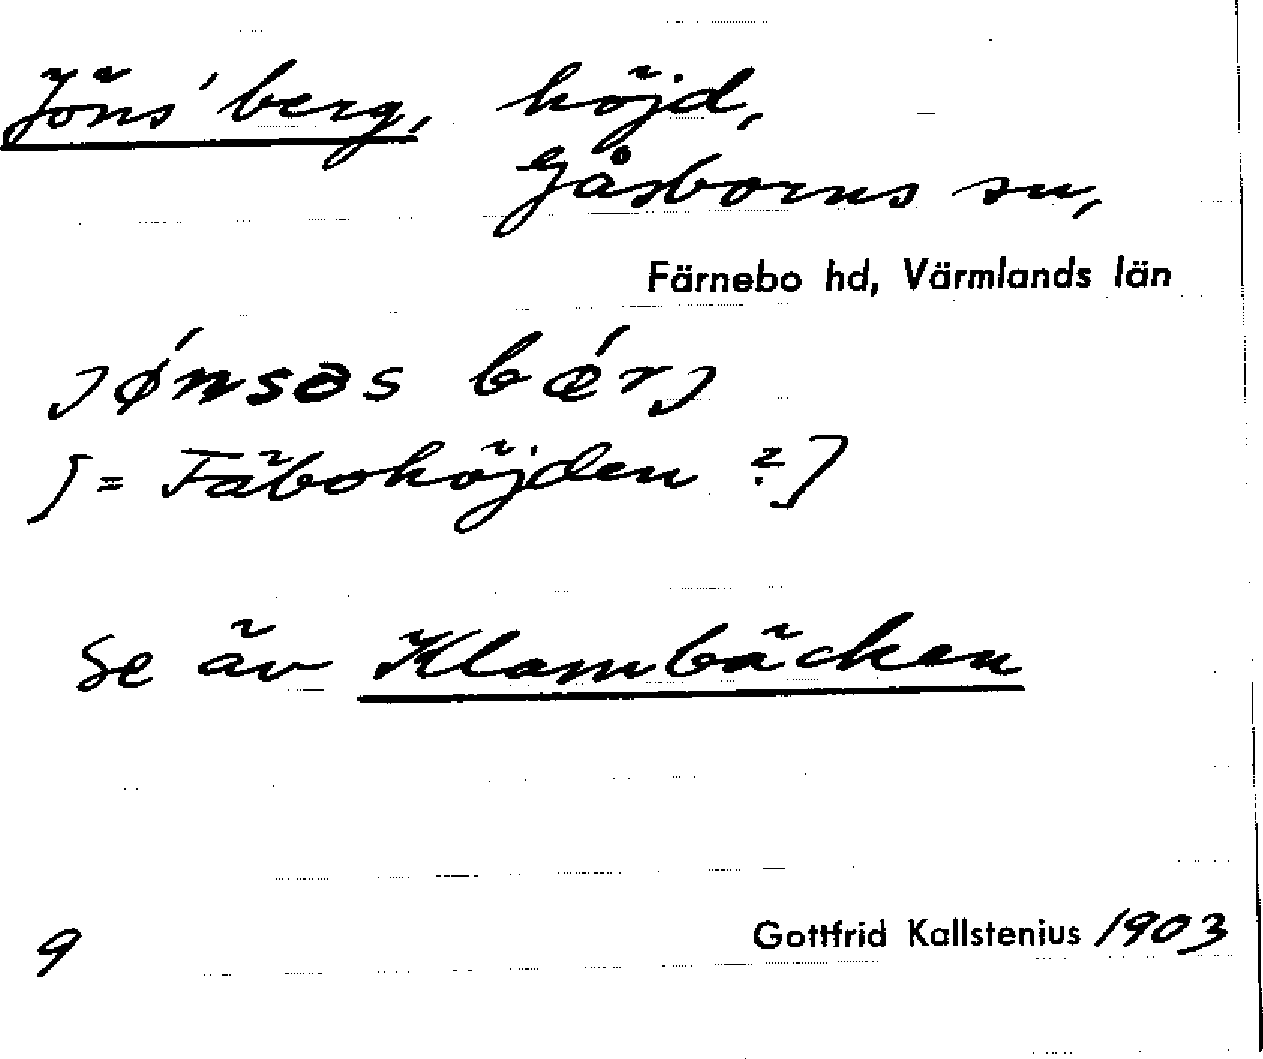 Jöns' berg, höjd,
Gåsborns sn,
Färnebo hd, Värmlands län
jǿnsəs bǽrj
[= Fäbohöjden ?]
Se äv Klambäcken
9 Gottfrid Kallstenius 1903